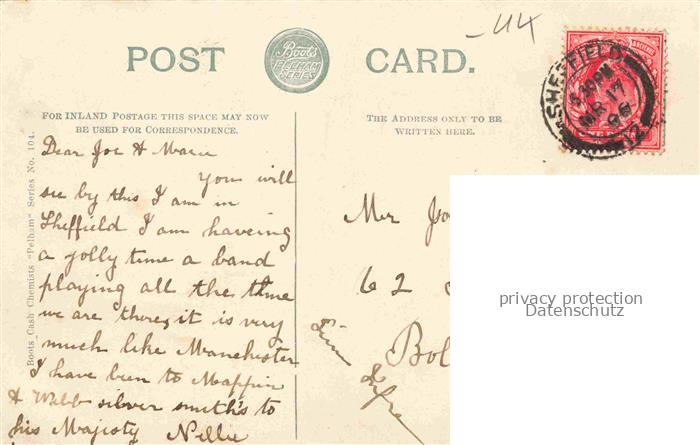 -44
POST CARD.
Boots
PELHAM
SERIES
FOR INLAND POSTAGE THIS SPACE MAY NOW
BE USED FOR CORRESPONDENCE.
THE ADDRESS ONLY TO BE
WRITTEN HERE.
SHEFFIELD
MR 17
06
Boots Cash Chemists "Pelham" Series No. 104.
Dear Joe &
You will
see by this I am in
Sheffield I am haveing
a jolly time a band
playing all the time
we are there, it is very
much like Manchester
I have been to Mappin
& Webb silver smith's to
his Majesty Nellie
Mr
62
Bol
privacy protection
Datenschutz